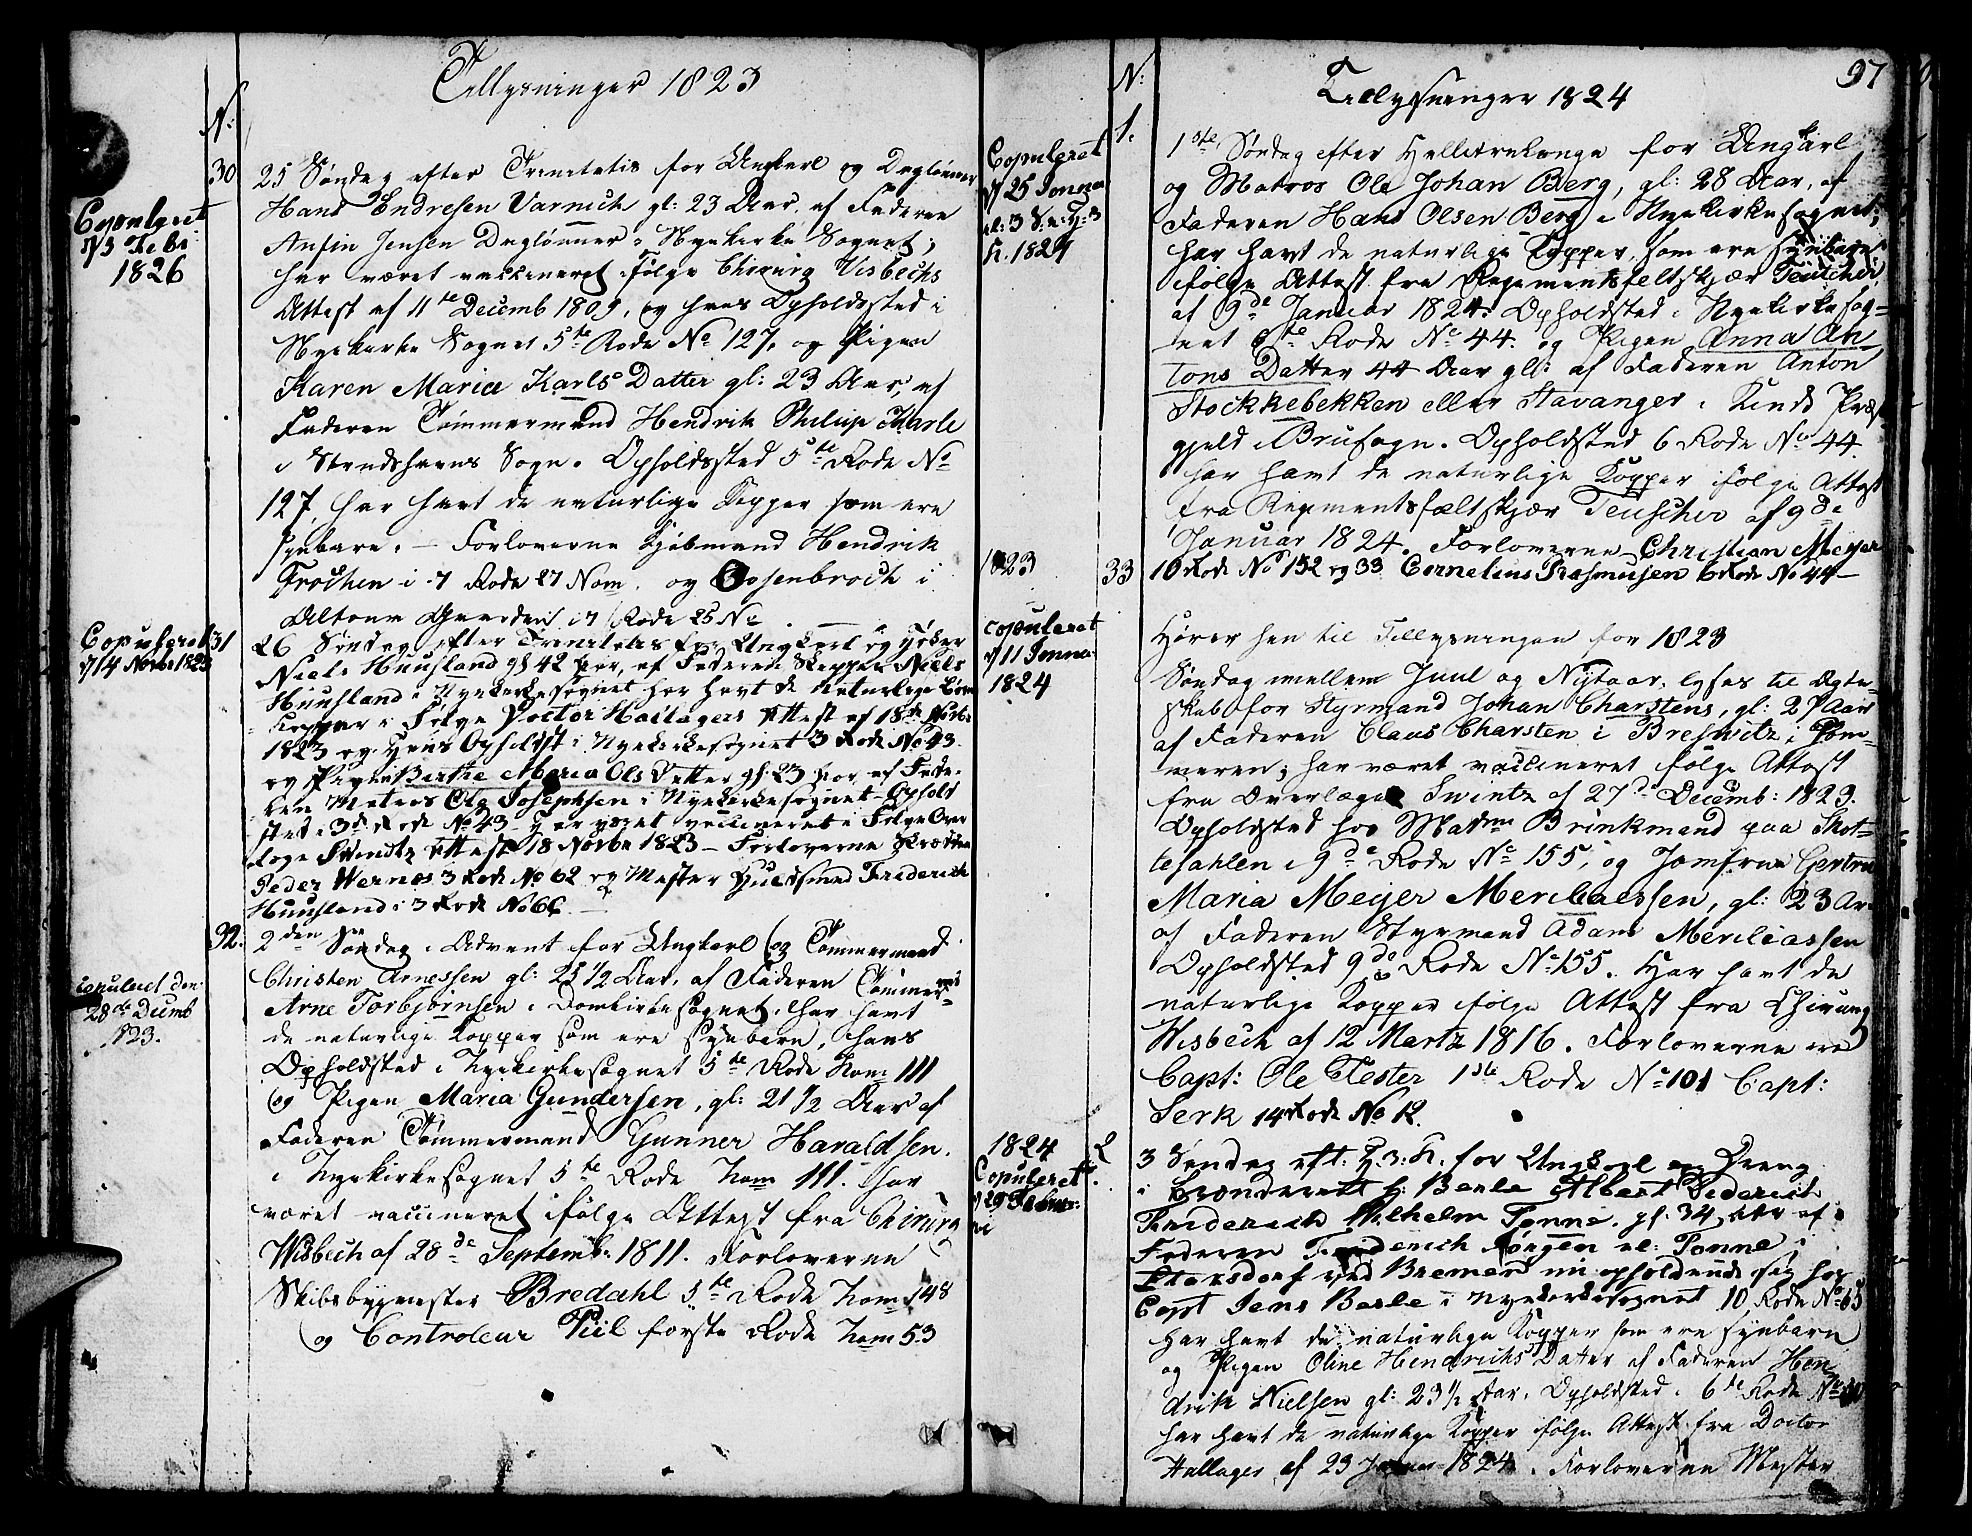 Tillysninger 1823
No:
Copuleret
d/3 Febr:
1826
30
25 Søndag efter Trinitatis for Ungkarl og Daglønner
Hans Endresen Varnich gl: 23 Aar, af Faderen
Anfin Jensen Daglønner i Nyekirke Sognet,
har været vaccineret ifølge Chirurg Visbechs
Attest af 11te Decemb 1809, og hans Opholdssted i
Nyekirke Sognet 5te Rode No 127, og Pigen
Karen Maria Karls Datter gl: 23 Aar, af
Faderen Tømmermand Hendrik Philip Karls
i Strudshavns Sogn. Opholdssted 5te Rode No
127, har havt de naturlige Kopper som ere
synbare. – Forloverne Kjøbmand Hendrik
Frochen i 7 Rode 27 Nom. og Rosenbroch i
Altona Gaarden i 7 Rode 25 No
Copuleret
d/14 Novbr 1823
31
26 Søndag efter Trinitatis for Ungkarl og
Niels Huusland gl 42 Aar, af Faderen Skipper Niels
Huusland i Nyekirkesognet har havt de naturlige Børne
kopper i Følge Doctor Hallagers Attest af 18de Novbr
1823 og hans Opholdst i Nyekirkesognet 3 Rode No 43
og Pigen Berthe Maria Ols Datter gl: 23 Aar af Fade-
ren Matros Ole Josephsen i Nyekirkesognet – Ophold
sted i 3de Rode No 43 – har været vaccineret i Følge Over
læge Swindtz Attest 18 Novbr 1823 – Forloverne
Peder Wernøs 3 Rode No 62 og Mester Guldsmed Friderich
Huusland i 3 Rode No 66
Copuleret den
28de Decmb
1823.
32.
2den Søndag i Advent for Ungkarl og Tømmermand
Christen Arnessen gl: 25 1/2 Aar, af Faderen Tømmermd
Arne Torbjørnsen i Domkirkesognet, har havt
de naturlige Kopper som ere synbare, hans
Opholdsted i Nyekirkesognet 5te Rode Nom 111
og Pigen Maria Gundersen, gl: 21 1/2 Aar af
Faderen Tømmermand Gunner Haraldsen.
i Nyekirkesognet 5te Rode Nom 111. har
været vaccineret ifølge Attest fra Chirurg
Wisbech af 28de Septemb: 1811. Forloverne
Skibsbygmester Bredahl 5te Rode Nom 148
og Controleur Piil første Rode Nom 53
97
Tillysninger 1824
N:
Copuleret
d/ 25 Janua
el: 3 S: e: H: 3
K. 1824
1.
1ste Søndag efter Hellitrekonge for Ungkarl
og Matros Ole Johan Berg, gl: 28 Aar, af
Faderen Hans Olsen Berg i Nyekirkesognet,
har havt de naturlige Kopper, som ere synbare
ifølge Attest fra Regimentsfeltskjær Teuscher
af 9de Januar 1824. Opholdsted i Nyekirkesog-
net 6te Rode No 44. og Pigen Anna An
tons Datter 44 Aar gl: af Faderen Anton
Stockkebekken eller Stavanger i Kinds Præste
gjeld i Brusogn. Opholdsted 6 Rode No 44.
har havt de naturlige Kopper ifølge Attest
fra Regimentsfæltskjær Teuscher af 9de
Januar 1824. Forloverne Christian Meyer
10 Rode No 152 og 33 Cornelius Rasmusen 6 Rode No 44 –
1823
33
Copuleret
d/ 11 Janua:
1824
Hører hen til Tillysningen for 1823
Søndag mellem Juul og Nytaar, lyses til Ægte-
skab for Styrmand Johan Charstens, gl: 27 Aar
af Faderen Claus Charsten i Breswitz i Pom-
meren; har været vaccineret ifølge Attest
fra Overlæge Swintz af 27de Decemb: 1823.
Opholdsted hos Madme Brinkmand paa Skot-
tesahlen i 9de Rode No 155, og Jomfrue Gertru
Maria Meyer Meriliaessen, gl: 23 Ar
af Faderen Styrmand Adam Meriliassen
Opholdsted 9de Rode No 155. Har havt de
naturlige Kopper ifølge Attest fra Chirurg
Wisbech af 12 Martz 1816. Forloverne ere
Capt: Ole Tester 1ste Rode No 101 Capt:
Serk 14 Rode No 12.
1824
Copuleret
d/29 Februa:
ri
2
3 Søndag eft: H. 3: K. for Ungkarl og Dreng
i Brænderiet h: Berle Albert Diderich
Friderich Wilhelm Tonne, gl: 34 Aar af
Faderen Friderich Jørgen el: Tonne i
Otersdorf ved Bremen nu opholdende sig hos
Capt Jens Berle i Nyekirkesognet 10 Rode No 65
har havt de naturlige Kopper som ere synbare
og Pigen Oline Hendrichs Datter af Faderen Hen
drik Nielsen gl: 23 1/2 Aar, Opholdsted i 6te Rode No
har havt de naturlige Kopper ifølge Attest fra Doctor
Hallager af 23 Januar 1824. Forloverne Mester